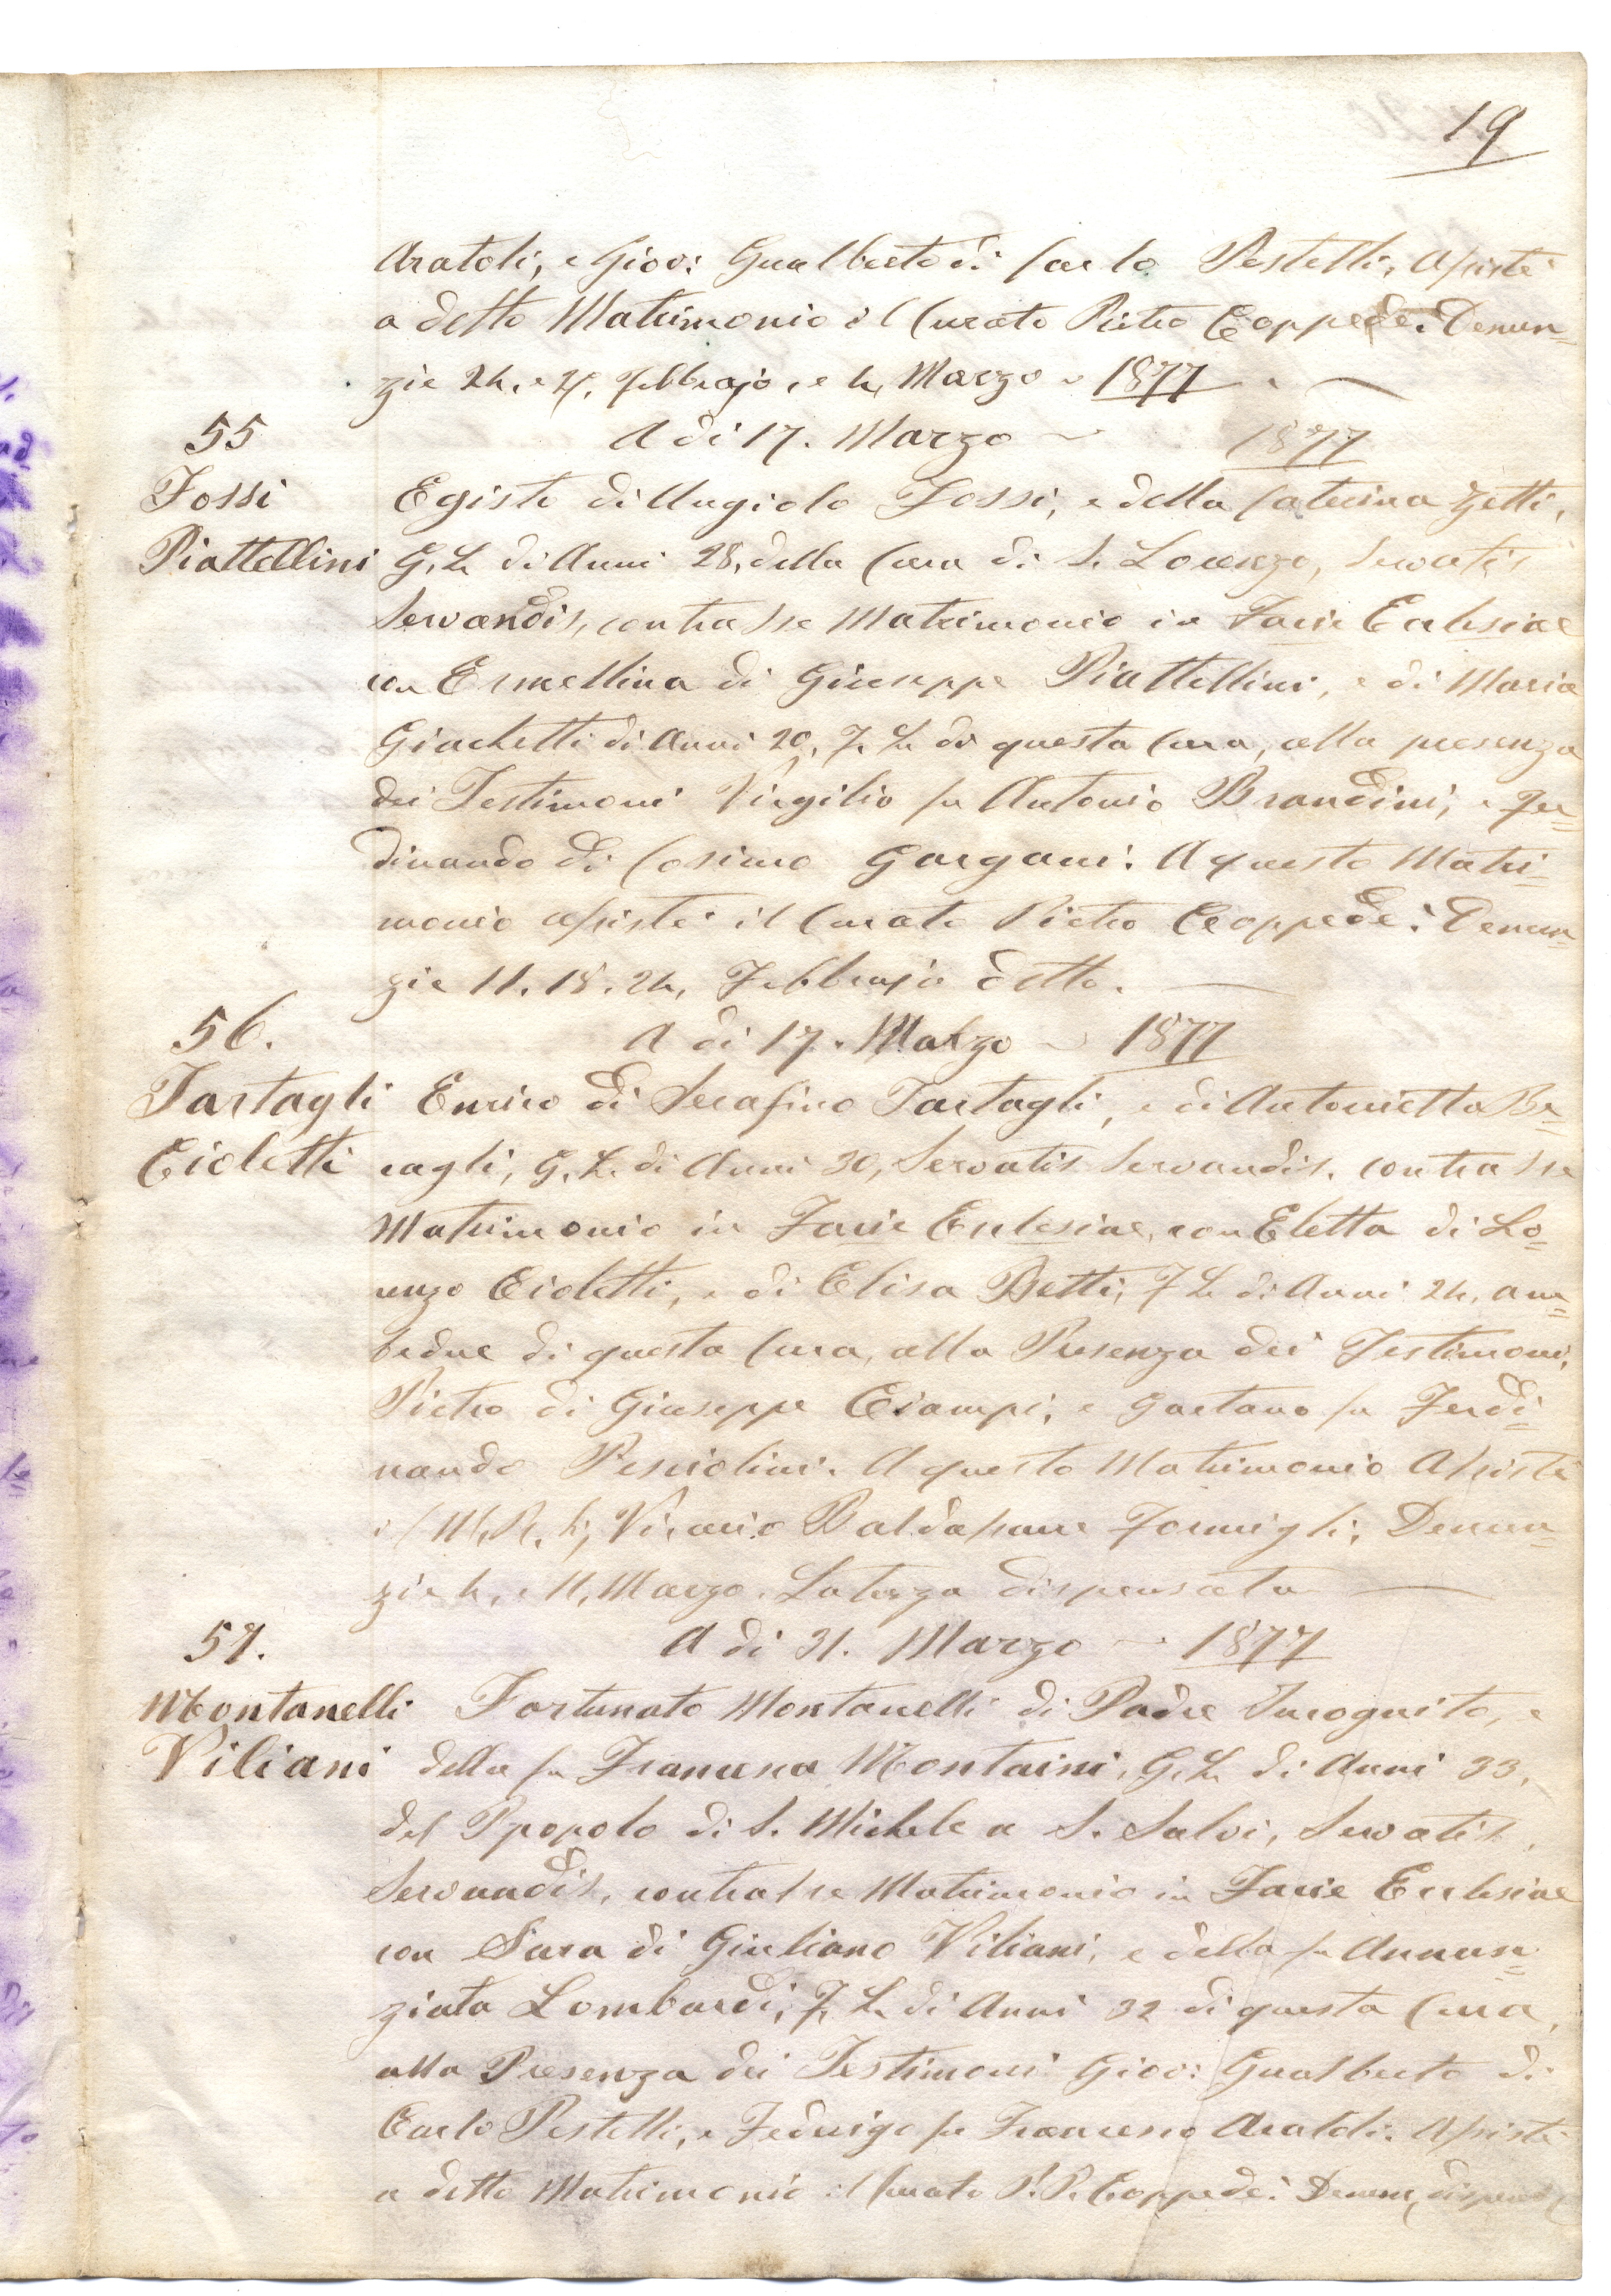 19
Aratoli, e Giov: Gualberto di Carlo Pestelli, Assistè
a detto Matrimonio il Curato Pietro Coppedè. Denun=
zie 24, e 25, Febbrajo, e 4, Marzo ~ 1877
55 A di 17. Marzo ~ 1877
Fossi Egisto di Angiolo Fossi, e della Caterina Zetti,
Piattellini G. L. di Anni 28, della Cura di S. Lorenzo, Servatis
Servandis, contrasse Matrimonio in Facie Eclesiae
con Ermellina di Giuseppe Piattellini, e di Maria
Giachetti di Anni 20, F. L. di questa Cura, alla presenza
dei Testimoni Virgilio fu Antonio Brandini, e Fer=
dinando di Cosimo Gargani. A questo Matri=
monio assistè il Curato Pietro Coppedè. Denun=
zie 11. 18. 24, Febbrajo detto.
56. A di 17. Marzo ~ 1877
Tartagli Enrico di Serafino Tartagli, e di Antonietta Be=
Cioletti cagli, G. L. di Anni 30, Servatis Servandis. contrasse
Matrimonio in Facie Eclesiae, con Eletta di Lo=
renzo Cioletti, e di Elisa Betti, F. L. di Anni 24, am=
bedue di questa Cura, alla Presenza dei Testimoni,
Pietro di Giuseppe Ciampi, e Gaetano fu Ferdi=
nando Pesciolini. A questo Matrimonio Assistè
il M. R. Vicario Baldassarre Formigli. Denun=
zie 4, e 11, Marzo. La terza dispensata
57. A di 31. Marzo ~ 1877
Montanelli Fortunato Montanelli di Padre Incognito, e
Viliani della fu Francesca Montaini, G. L. di Anni 33,
del Ppopolo di S. Michele a S. Salvi, Servatis
Servandis, contrasse Matrimonio in Facie Eclesiae
con Sara di Giuliano Viliani, e della fu Annun=
ziata Lombardi, F. L. di Anni 32 di questa Cura,
alla Presenza dei Testimoni Giov: Gualberto di
Carlo Pestelli, e Federigo fu Francesco Aratoli. Assistè
a detto Matrimonio il Curato P. P. Coppedè. Denun,